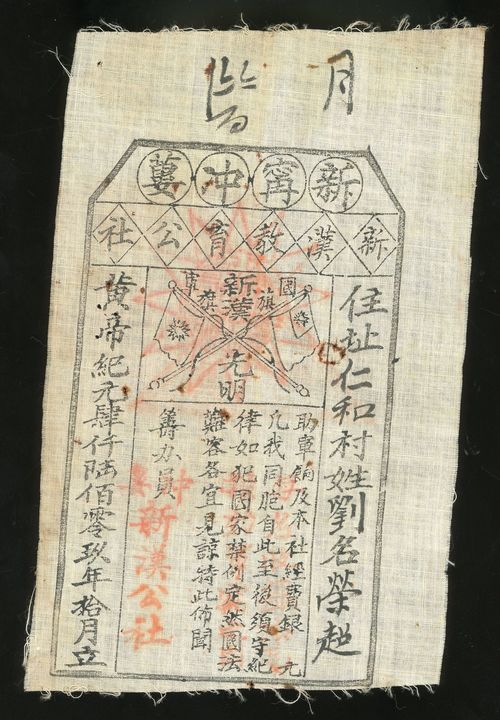 月
新甯冲蔞
新漢教育公社
住址仁和村姓劉名榮超
國旗
新漢
軍旗
光明
助軍餉及本社經費銀 元
凡我同胞自此至後須守紀
律如犯國家禁例定然國法
難容各宜見諒特此佈聞
籌办員
新漢公社
黄帝紀元肆仟陸佰零玖年拾月立